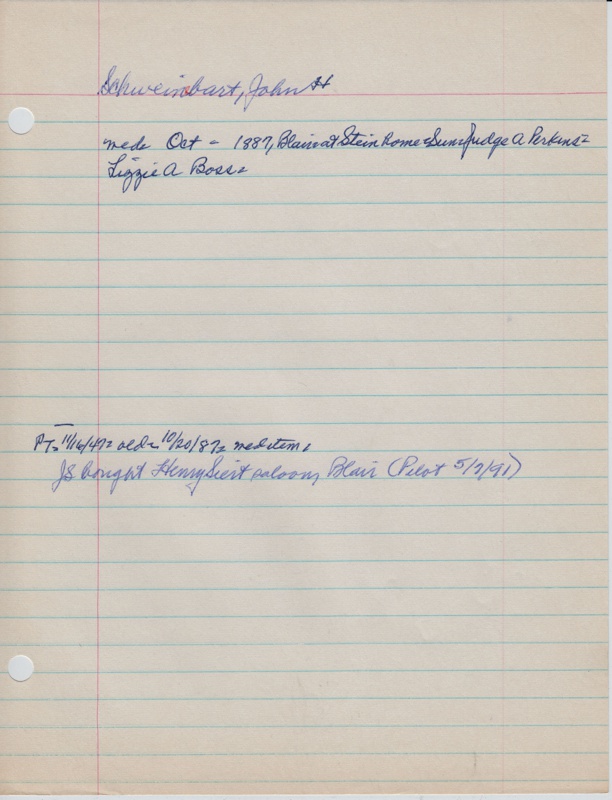 Schweinbart, John H
wed- Oct - 1887, Blair at Stein Home - Sun - Judge A Perkins =
Lizzie A Boss =
PT- 11/16/47 = old - 10/20/87 = wed item.
JS bought Henry Siert saloon, Blair (Pilot 5/7/91)